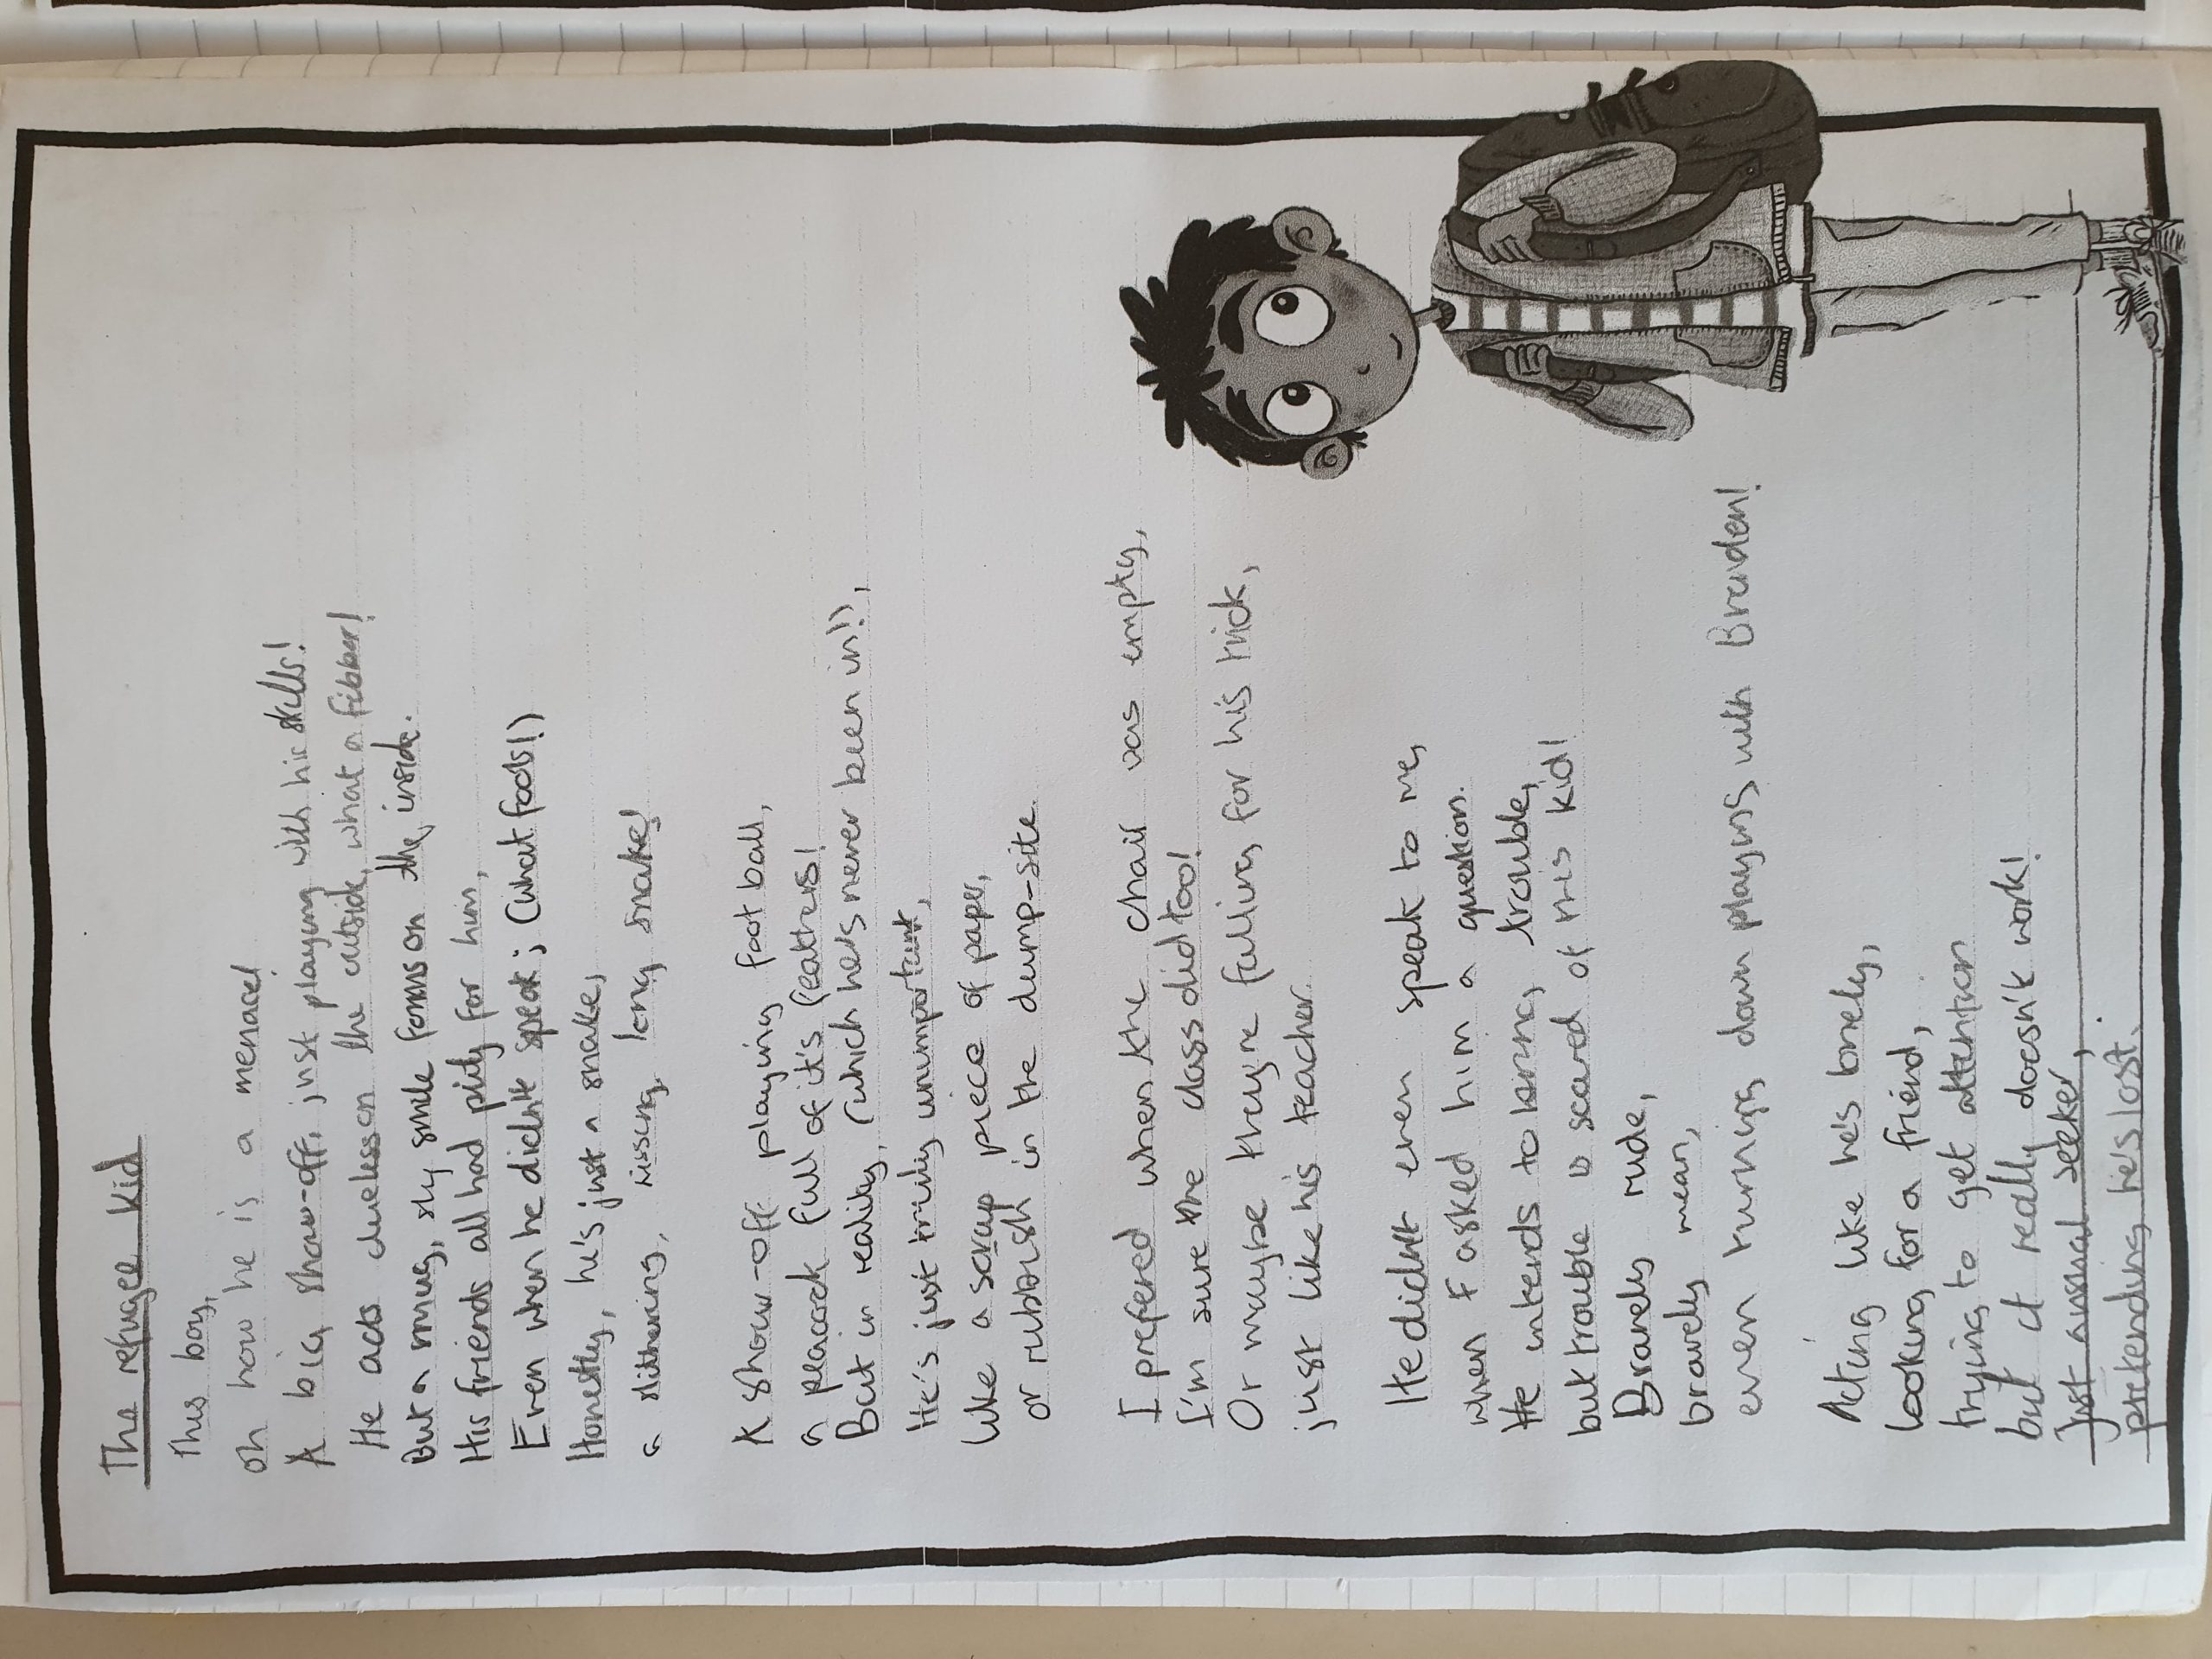 The refugee kid
This boy,
oh how he is a menace!
A big show-off, just playing with his skills!
He acts clueless on the outside, what a fibber!
But a smug, sly smile forms on the, inside.
His friends all had pity for him,
Even when he didn't speak; (what fools!)
Honestly, he's just a snake,
a slithering, hissing, long, snake!
A show-off playing foot ball,
a peacock full of it's feathers!
But in reality, (which he's never been in!),
He's just truly unimportant,
like a scrap piece of paper,
or rubbish in the dump-site
I prefered when the chair was empty,
I'm sure the class did too!
Or maybe they're falling for his trick,
just like his teacher.
He didn't even speak to me,
when I asked him a question.
He intends to bring trouble,
but trouble is scared of this kid!
Bravely rude,
bravely mean,
even turning down playing with Brendan!
Acting like he's lonely,
looking for a friend,
trying to get attention
but it really doesn't work!
Just seeker,
pretending he's lost.